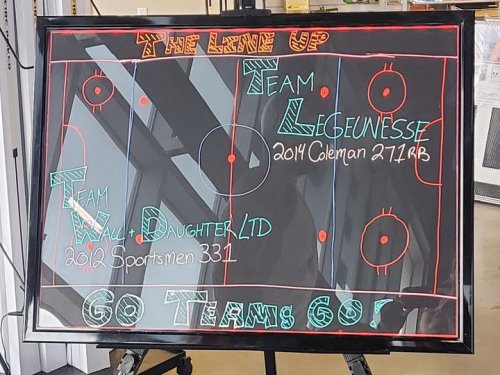 THE LINE UP
TEAM
LEGEUNESSE
2014 Coleman 271RB
TEAM
WALL + DAUGHTER LTD
2012 Sportsmen 331
GO TEAMS GO!